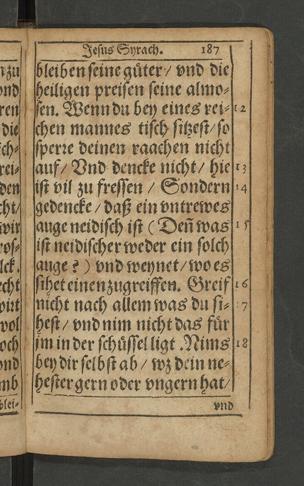 Jesus Syrach. 187
bleiben seine güter/ vnd die
heiligen preisen seine almo⸗
sen. Wenn du bey eines rei⸗ 12
chen mannes tisch sitzest/ so
sperre deinen raachen nicht
auf/ Vnd dencke nicht/ hie 13
ist vil zu fressen/ Sondern 14
gedencke/ daß ein vntrewes
auge neidisch ist (Deñ was 15
ist neidischer weder ein solch
auge?) vnd weynet/ wo es
sihet einen zugreiffen. Greif 16
nicht nach allem was du si⸗ 17
hest/ vnd nim nicht das für
im in der schüssel ligt. Nims 18
bey dir selbst ab/ wz dein ne⸗
hester gern oder vngern hat/
vnd